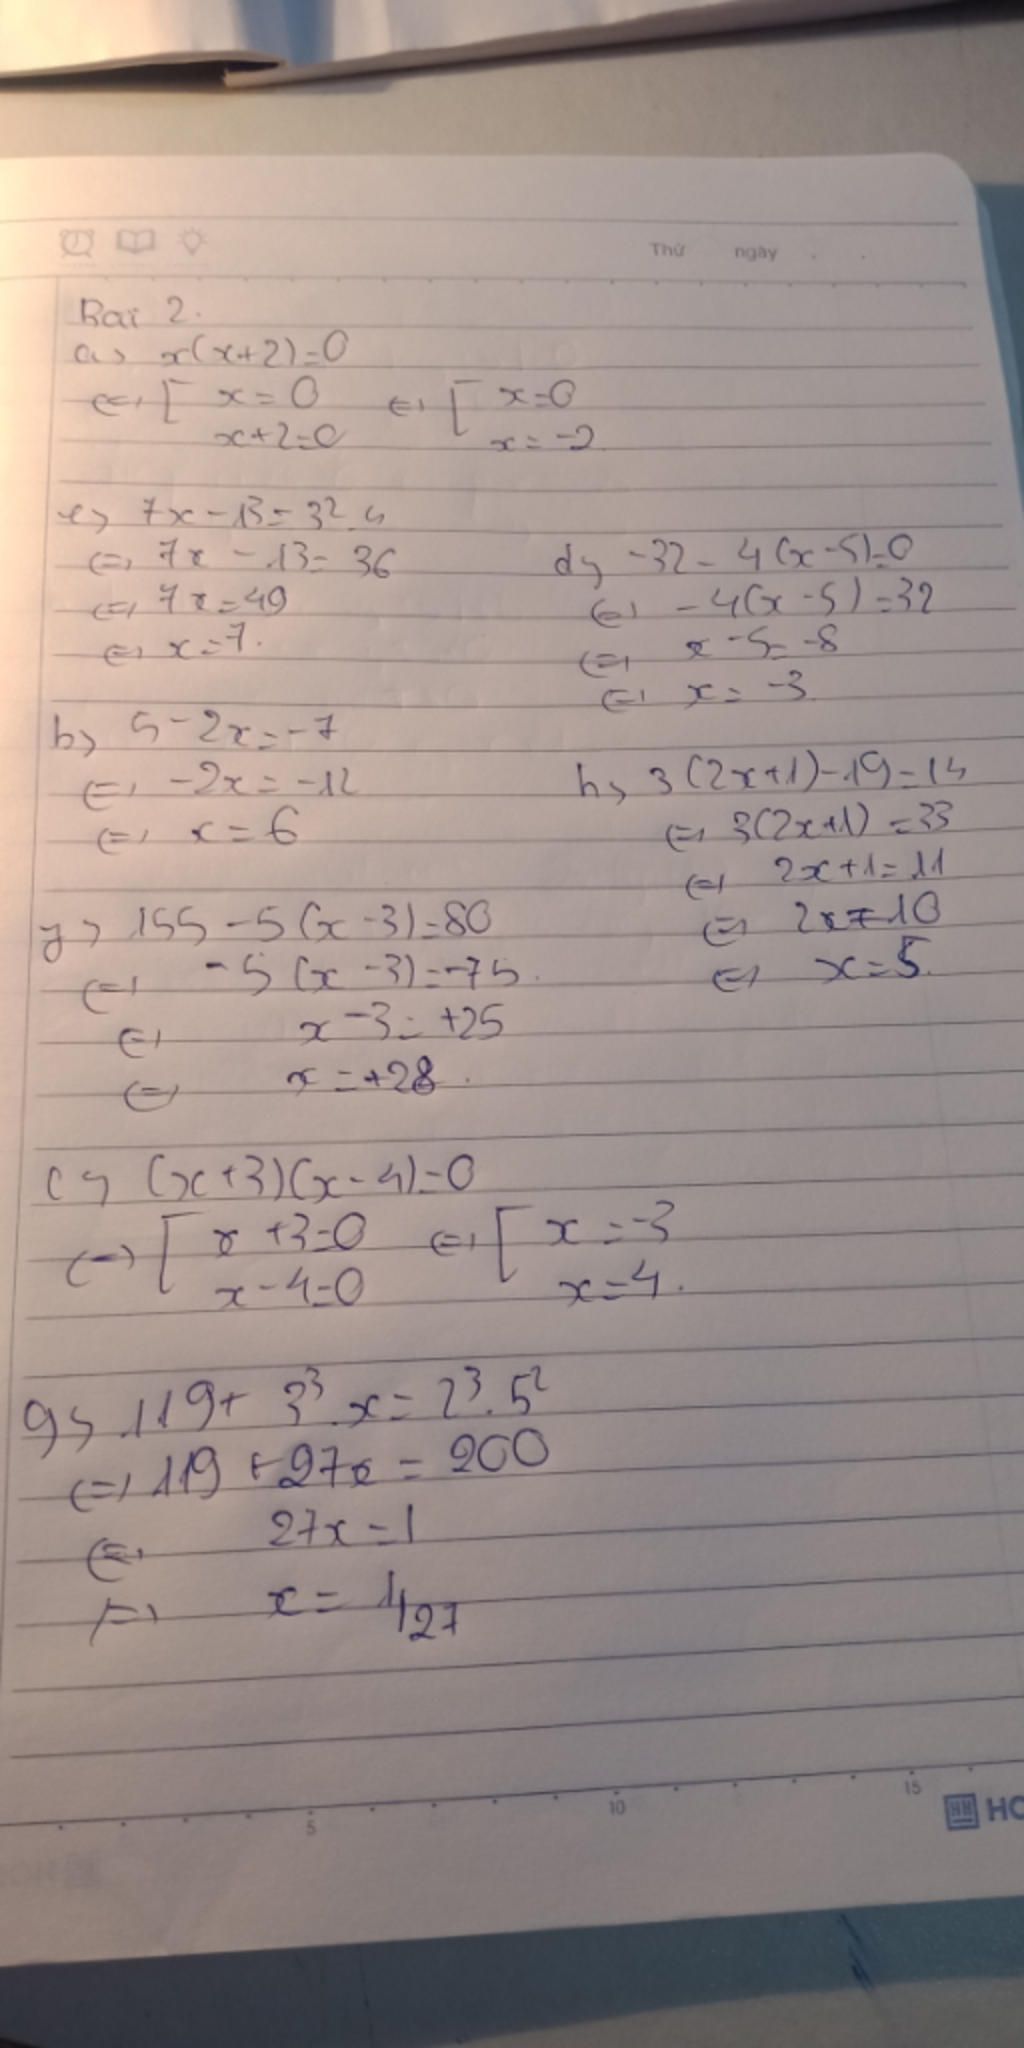 Thứ ngày . .
Bài 2.
a, x(x+2)=0
<=> [ x=0 <=> [ x=0
x+2=0 x=-2
e, 7x-13=3².4
<=> 7x-13=36
<=> 7x=49
<=> x=7.
d, -32-4(x-5)=0
<=> -4(x-5)=32
<=> x-5=-8
<=> x=-3
b, 5-2x=-7
<=> -2x=-12
<=> x=6
h, 3(2x+1)-19=14
<=> 3(2x+1)=33
<=> 2x+1=11
<=> 2x=10
<=> x=5.
y, 155-5(x-3)=80
<=> -5(x-3)=-75.
<=> x-3=+25
<=> x=+28.
c, (x+3)(x-4)=0
<=> [ x+3=0 <=> [ x=-3
x-4=0 x=4.
g, 119+3³.x=2³.5²
<=> 119+27x=200
<=> 27x=1
<=> x=1/27
5 10 15
HH HO